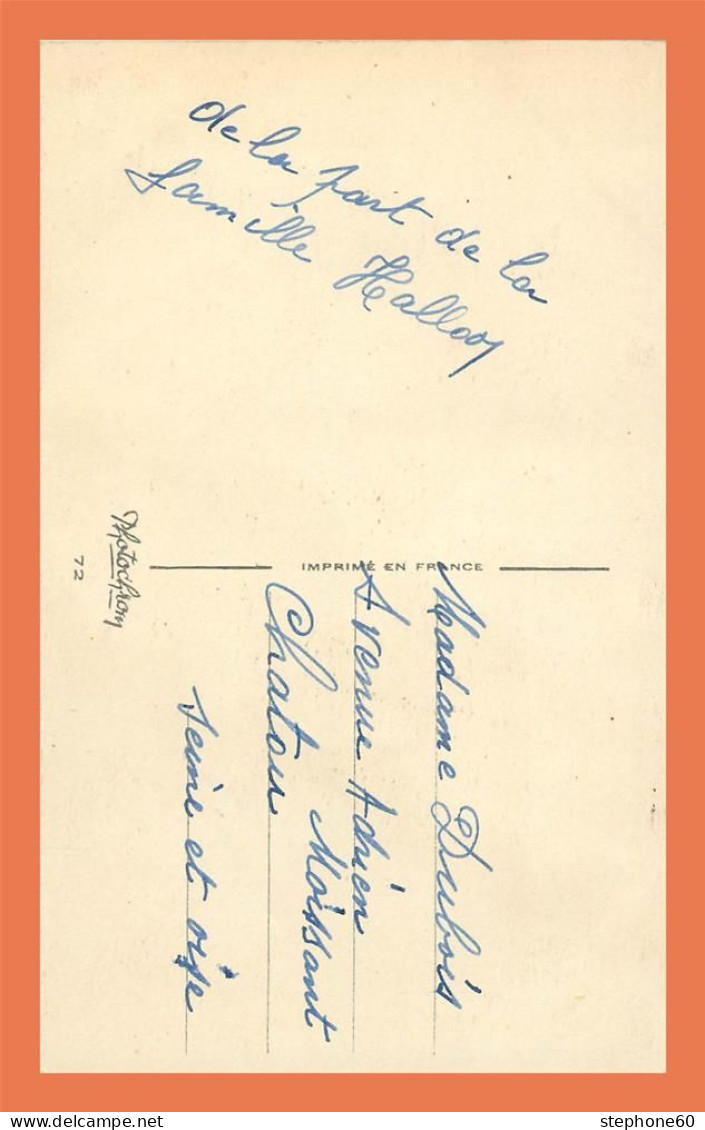 de la part de la
famille
IMPRIMÉ EN FRANCE
Photochrom
72
Madame Dubois
Avenue Adrien
Moissant
Chatou
Seine et oise
stephone60